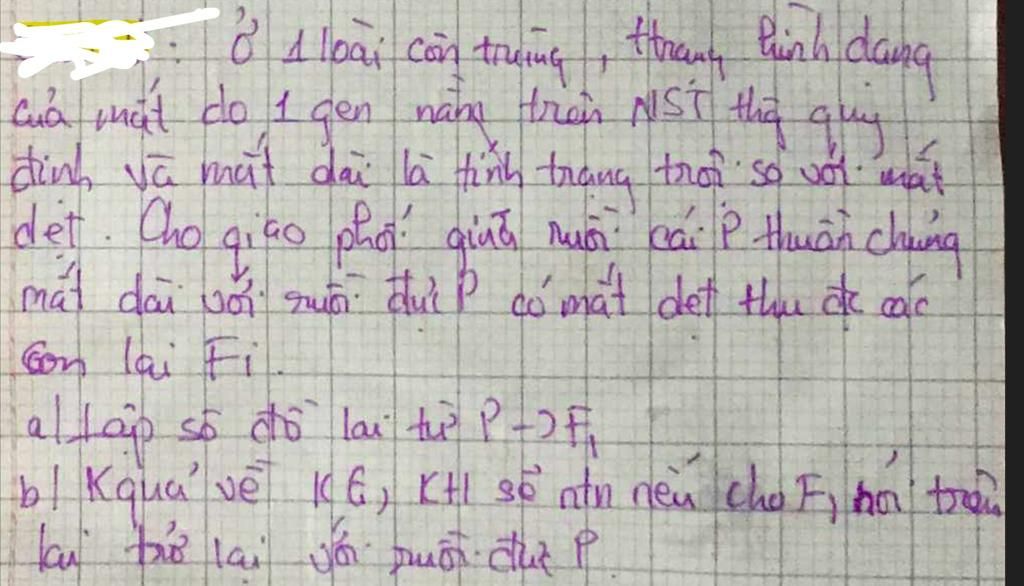 : Ở 1 loài côn trùng, ttrạng hình dạng
của mắt do 1 gen nằm trên NST thg quy
định và mắt dài là tính trạng trội so với mắt
dẹt. Cho giao phối giữa ruồi cái P thuần chủng
mắt dài với ruồi đực P có mắt dẹt thu đc các
con lai F1.
a/ Lập sơ đồ lai từ P -> F1
b/ Kquả về KG, KH sẽ ntn nếu cho F1 nói trên
lai trở lại với ruồi đực P